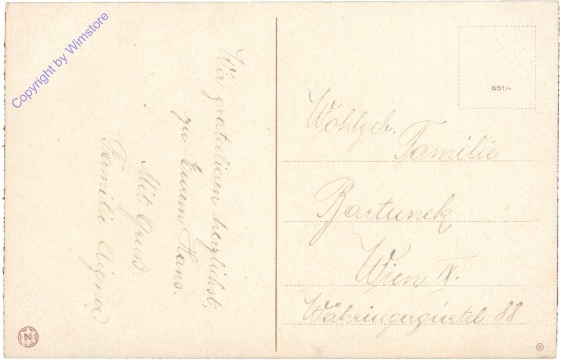 Wir gratulieren herzlichst,
zu Eurem Hans.
Mit Gruß
Familie Aigner
Wohlgeb.
Familie
Bartunek
Wien
Währingergürtel 88
651/4
Copyright by Wimstore
N